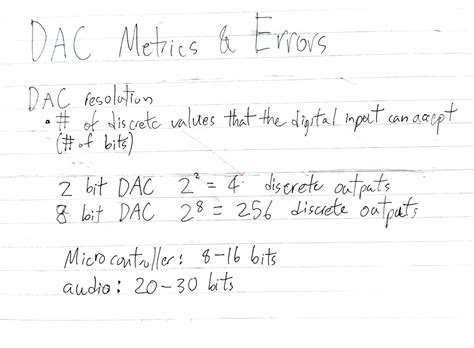 DAC Metrics & Errors
DAC resolution
• # of discrete values that the digital input can accept
(# of bits)
2 bit DAC 2² = 4 discrete outputs
8 bit DAC 2⁸ = 256 discrete outputs
Microcontroller: 8-16 bits
audio: 20-30 bits